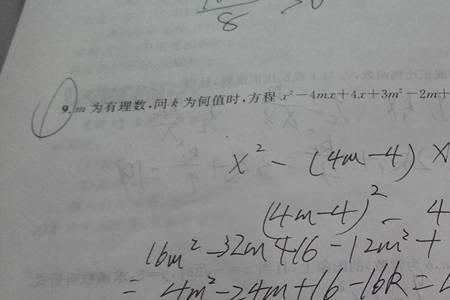 8
9. m 为有理数,问 k 为何值时,方程 x²-4mx+4x+3m²-2m+
x² - (4m-4) x
(4m-4)² - 4
16m²-32m+16-12m²+
= 4m²-24m+16-16k=